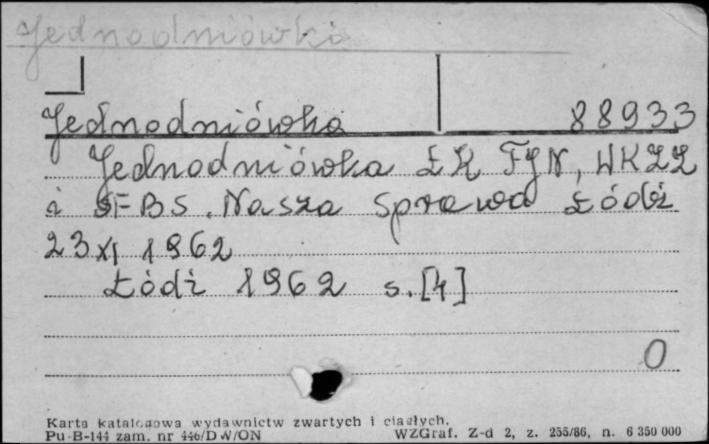 Jednodniówki
Jednodniówka 88933
Jednodniówka ŁK FJN, WKZZ
i SFBS. Nasza Sprawa Łódź
23 XI 1962
Łódź 1962 s. [4]
0
Karta katalogowa wydawnictw zwartych i ciągłych.
Pu-B-144 zam. nr 446/DW/ON WZGraf. Z-d 2, z. 255/86, n. 6 350 000